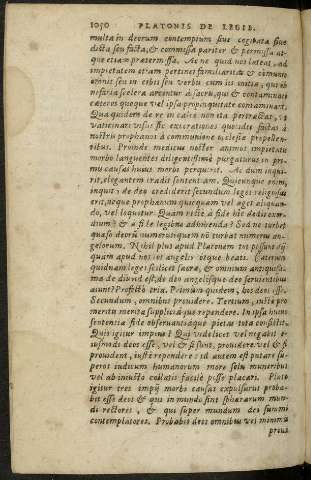 1050 PLATONIS DE LEGIB.
multa in deorum contemptum siue cogitata siue
dicta seu facta, & commissa pariter & permissa at-
que etiam prætermissa. Ac ne quid nos lateat, ad
impietatem etiam pertinet familiaritas & communi
onis seu in rebus seu verbis cum iis inita, qui ob
nefaria scelera arcentur a sacris, qui & contaminati
cæteros quoque vel ipsa propinquitate contaminant.
Qua quidem de re in
vaticinari visus est execrationes quasdе factas à
nostris prophanos à communione ecclesiæ propellen-
tibus. Proinde medicus noster animos impietatis
morbo languentes diligentissime purgaturus in pri-
mis causas huius morbi perquirit. Ac dum inqui-
rit, elegantem tradit sententiam. Quicunque enim,
inquit, de deo crediderit secundum leges religiosus
erit, neque prophanum quicquam vel aget aliquan-
do, vel loquetur. Quàm recte à fide hic dedit exor-
dium? & à fide legibus adhibenda? Sed ne turbet
quæso deorum numerus quem nō turbat numerus an-
gelorum. Nihil plus apud Platonem tot possunt dij
quàm apud nos tot angeli totque beati. Cæterum
quidnam leget scilicet sacræ, & omnium antiquissi-
ma de diuina est, de deo angelisque deo seruientibus
aiunt? Profecto tria. Primum quidem, hos deos esse.
Secundum, omnibus prouidere. Tertium, iuste pro
meritis merita suppliciaque rependere. In ipsa huius
sententiæ fide obseruantiaque pietas tota consistit.
Quis igitur impius? Qui videlicet vel negabit
eiusmodi deos esse, vel & si sunt, prouidere, vel & si
prouident, iuste rependere: id autem est putare su-
peros iudicum humanorum more solu muneribus
vel ab iniusto collatis facile posse placari. Plato
igitur tres impij morbi causas expulsurus proba-
bit esse deos & qui in mundo sint sphærarum mun-
di rectores, & qui super mundum dei summi
contemplatores. Probabit deos omnibus vel minimis
prius